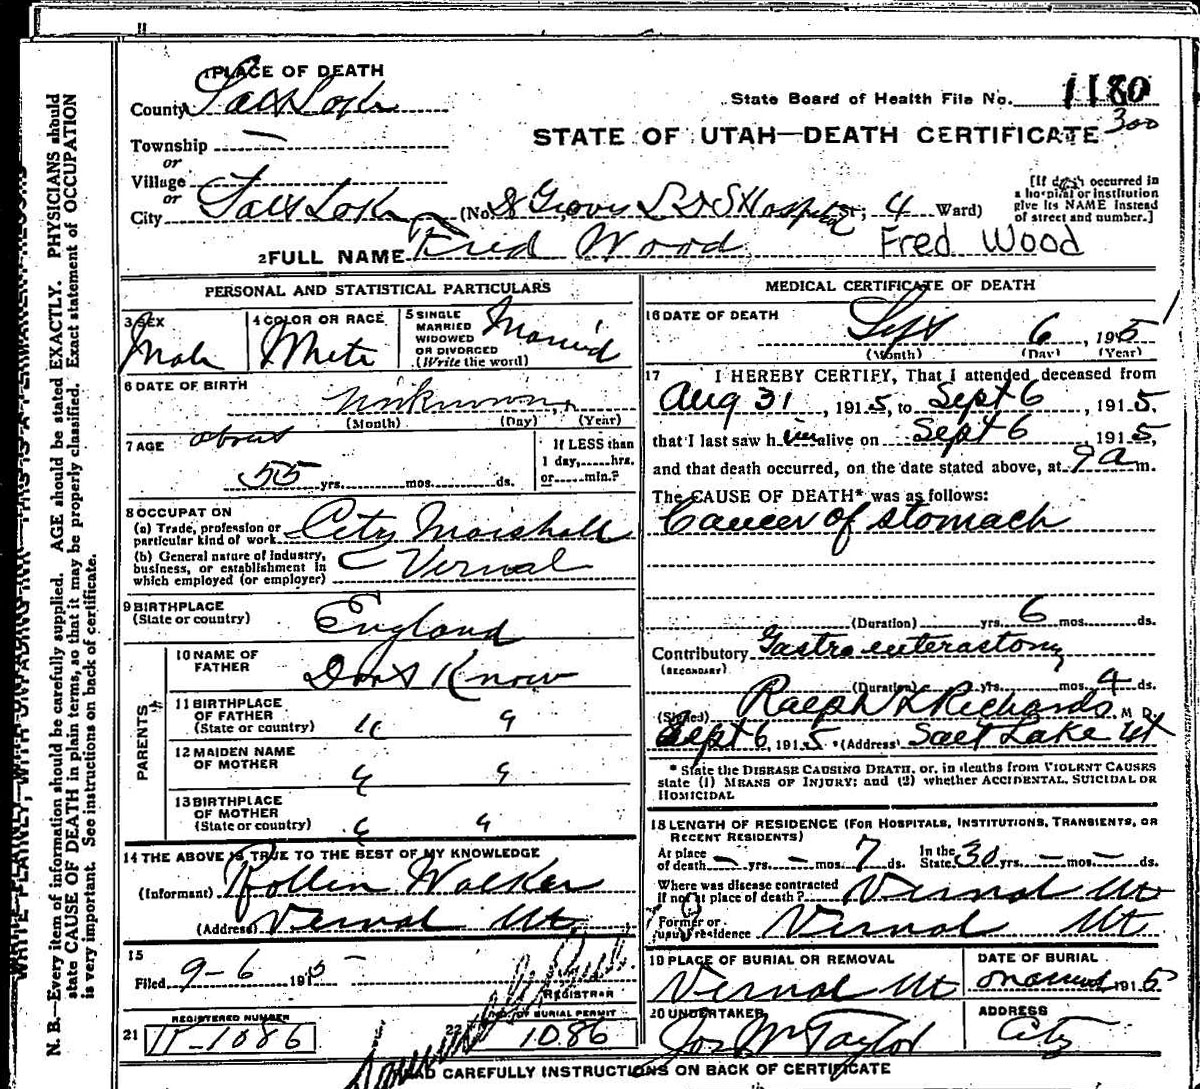 1 PLACE OF DEATH
County Salt Lake
State Board of Health File No. 1180
300
STATE OF UTAH—DEATH CERTIFICATE
Township —
or
Village
or
City Salt Lake (No. Dr Groves L D S Hospital St; 4 Ward)
[If death occurred in
a hospital or institution
give its NAME instead
of street and number.]
2 FULL NAME Fred Wood Fred Wood
PERSONAL AND STATISTICAL PARTICULARS
3 SEX
Male
4 COLOR OR RACE
White
5 SINGLE
MARRIED
WIDOWED
OR DIVORCED
(Write the word)
Married
6 DATE OF BIRTH
Unknown
(Month) (Day) (Year)
7 AGE about
55 yrs. mos. ds.
If LESS than
1 day, hrs.
or min.?
8 OCCUPATION
(a) Trade, profession or
particular kind of work City Marshall
(b) General nature of industry,
business, or establishment in
which employed (or employer) Vernal
9 BIRTHPLACE
(State or country) England
PARENTS
10 NAME OF
FATHER Dont Know
11 BIRTHPLACE
OF FATHER
(State or country) " "
12 MAIDEN NAME
OF MOTHER " "
13 BIRTHPLACE
OF MOTHER
(State or country) " "
14 THE ABOVE IS TRUE TO THE BEST OF MY KNOWLEDGE
(Informant) Rollin Walker
(Address) Vernal Ut.
15
Filed 9-6 1915
REGISTRAR
REGISTERED NUMBER
21 R-1086
22 NO. OF BURIAL PERMIT
1086
MEDICAL CERTIFICATE OF DEATH
16 DATE OF DEATH
Sept 6, 1915
(Month) (Day) (Year)
17 I HEREBY CERTIFY, That I attended deceased from
Aug 31, 1915, to Sept 6, 1915,
that I last saw him alive on Sept 6 1915,
and that death occurred, on the date stated above, at 9 a m.
The CAUSE OF DEATH* was as follows:
Cancer of stomach
(Duration) yrs. 6 mos. ds.
Contributory Gastro enterostomy
(SECONDARY)
(Duration) yrs. mos. 4 ds.
(Signed) Ralph Richards M.D.
Sept 6, 1915 (Address) Salt Lake Ut
* State the DISEASE CAUSING DEATH, or, in deaths from VIOLENT CAUSES
state (1) MEANS OF INJURY; and (2) whether ACCIDENTAL, SUICIDAL OR
HOMICIDAL
18 LENGTH OF RESIDENCE (FOR HOSPITALS, INSTITUTIONS, TRANSIENTS, OR
RECENT RESIDENTS)
At place
of death — yrs. — mos. 7 ds.
In the
State 30 yrs. — mos. — ds.
Where was disease contracted
if not at place of death? Vernal Ut
Former or
usual residence Vernal Ut
19 PLACE OF BURIAL OR REMOVAL
Vernal Ut
DATE OF BURIAL
1915
20 UNDERTAKER
Jos Wm Taylor
ADDRESS
City
READ CAREFULLY INSTRUCTIONS ON BACK OF CERTIFICATE
WRITE PLAINLY, WITH UNFADING INK—THIS IS A PERMANENT RECORD
N. B.—Every item of information should be carefully supplied. AGE should be stated EXACTLY. PHYSICIANS should
state CAUSE OF DEATH in plain terms, so that it may be properly classified. Exact statement of OCCUPATION
is very important. See instructions on back of certificate.